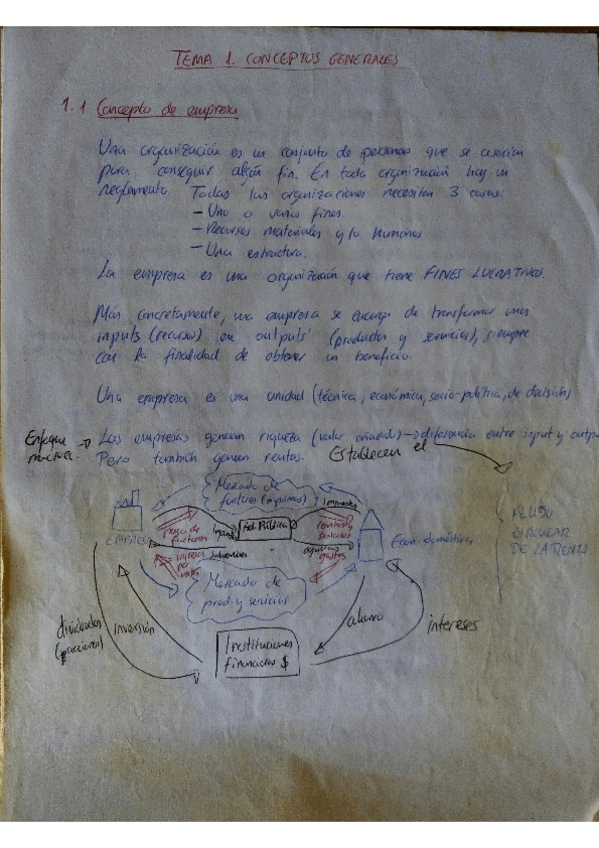 TEMA 1. CONCEPTOS GENERALES
1.1 Concepto de empresa
Una organización es un conjunto de personas que se asocian
para conseguir algún fin. En toda organización hay un
reglamento. Todas las organizaciones necesitan 3 cosas:
- Uno o varios fines.
- Recursos materiales y/o humanos
- Una estructura.
La empresa es una organización que tiene FINES LUCRATIVOS.
Más concretamente, una empresa se encarga de transformar unos
inputs (recursos) en outputs (productos y servicios), siempre
con la finalidad de obtener un beneficio.
Una empresa es una unidad (técnica, económica, socio-política, de decisión)
Enfoque
Las empresas generan riqueza (valor añadido) → diferencia entre input y outpu
Pero también generan rentas.
Establecen el
FLUJO
CIRCULAR
DE LA RENTA
Mercado de
factores (inputs)
Impuestos
EMPRESA
pago de
factores
Ad. Pública
rentas y
salarios
Econ. domésticas
ingresos
por
ventas
gastos
Mercado de
prod. y servicios
dividendos
inversión
Instituciones
financieras $
ahorro
intereses